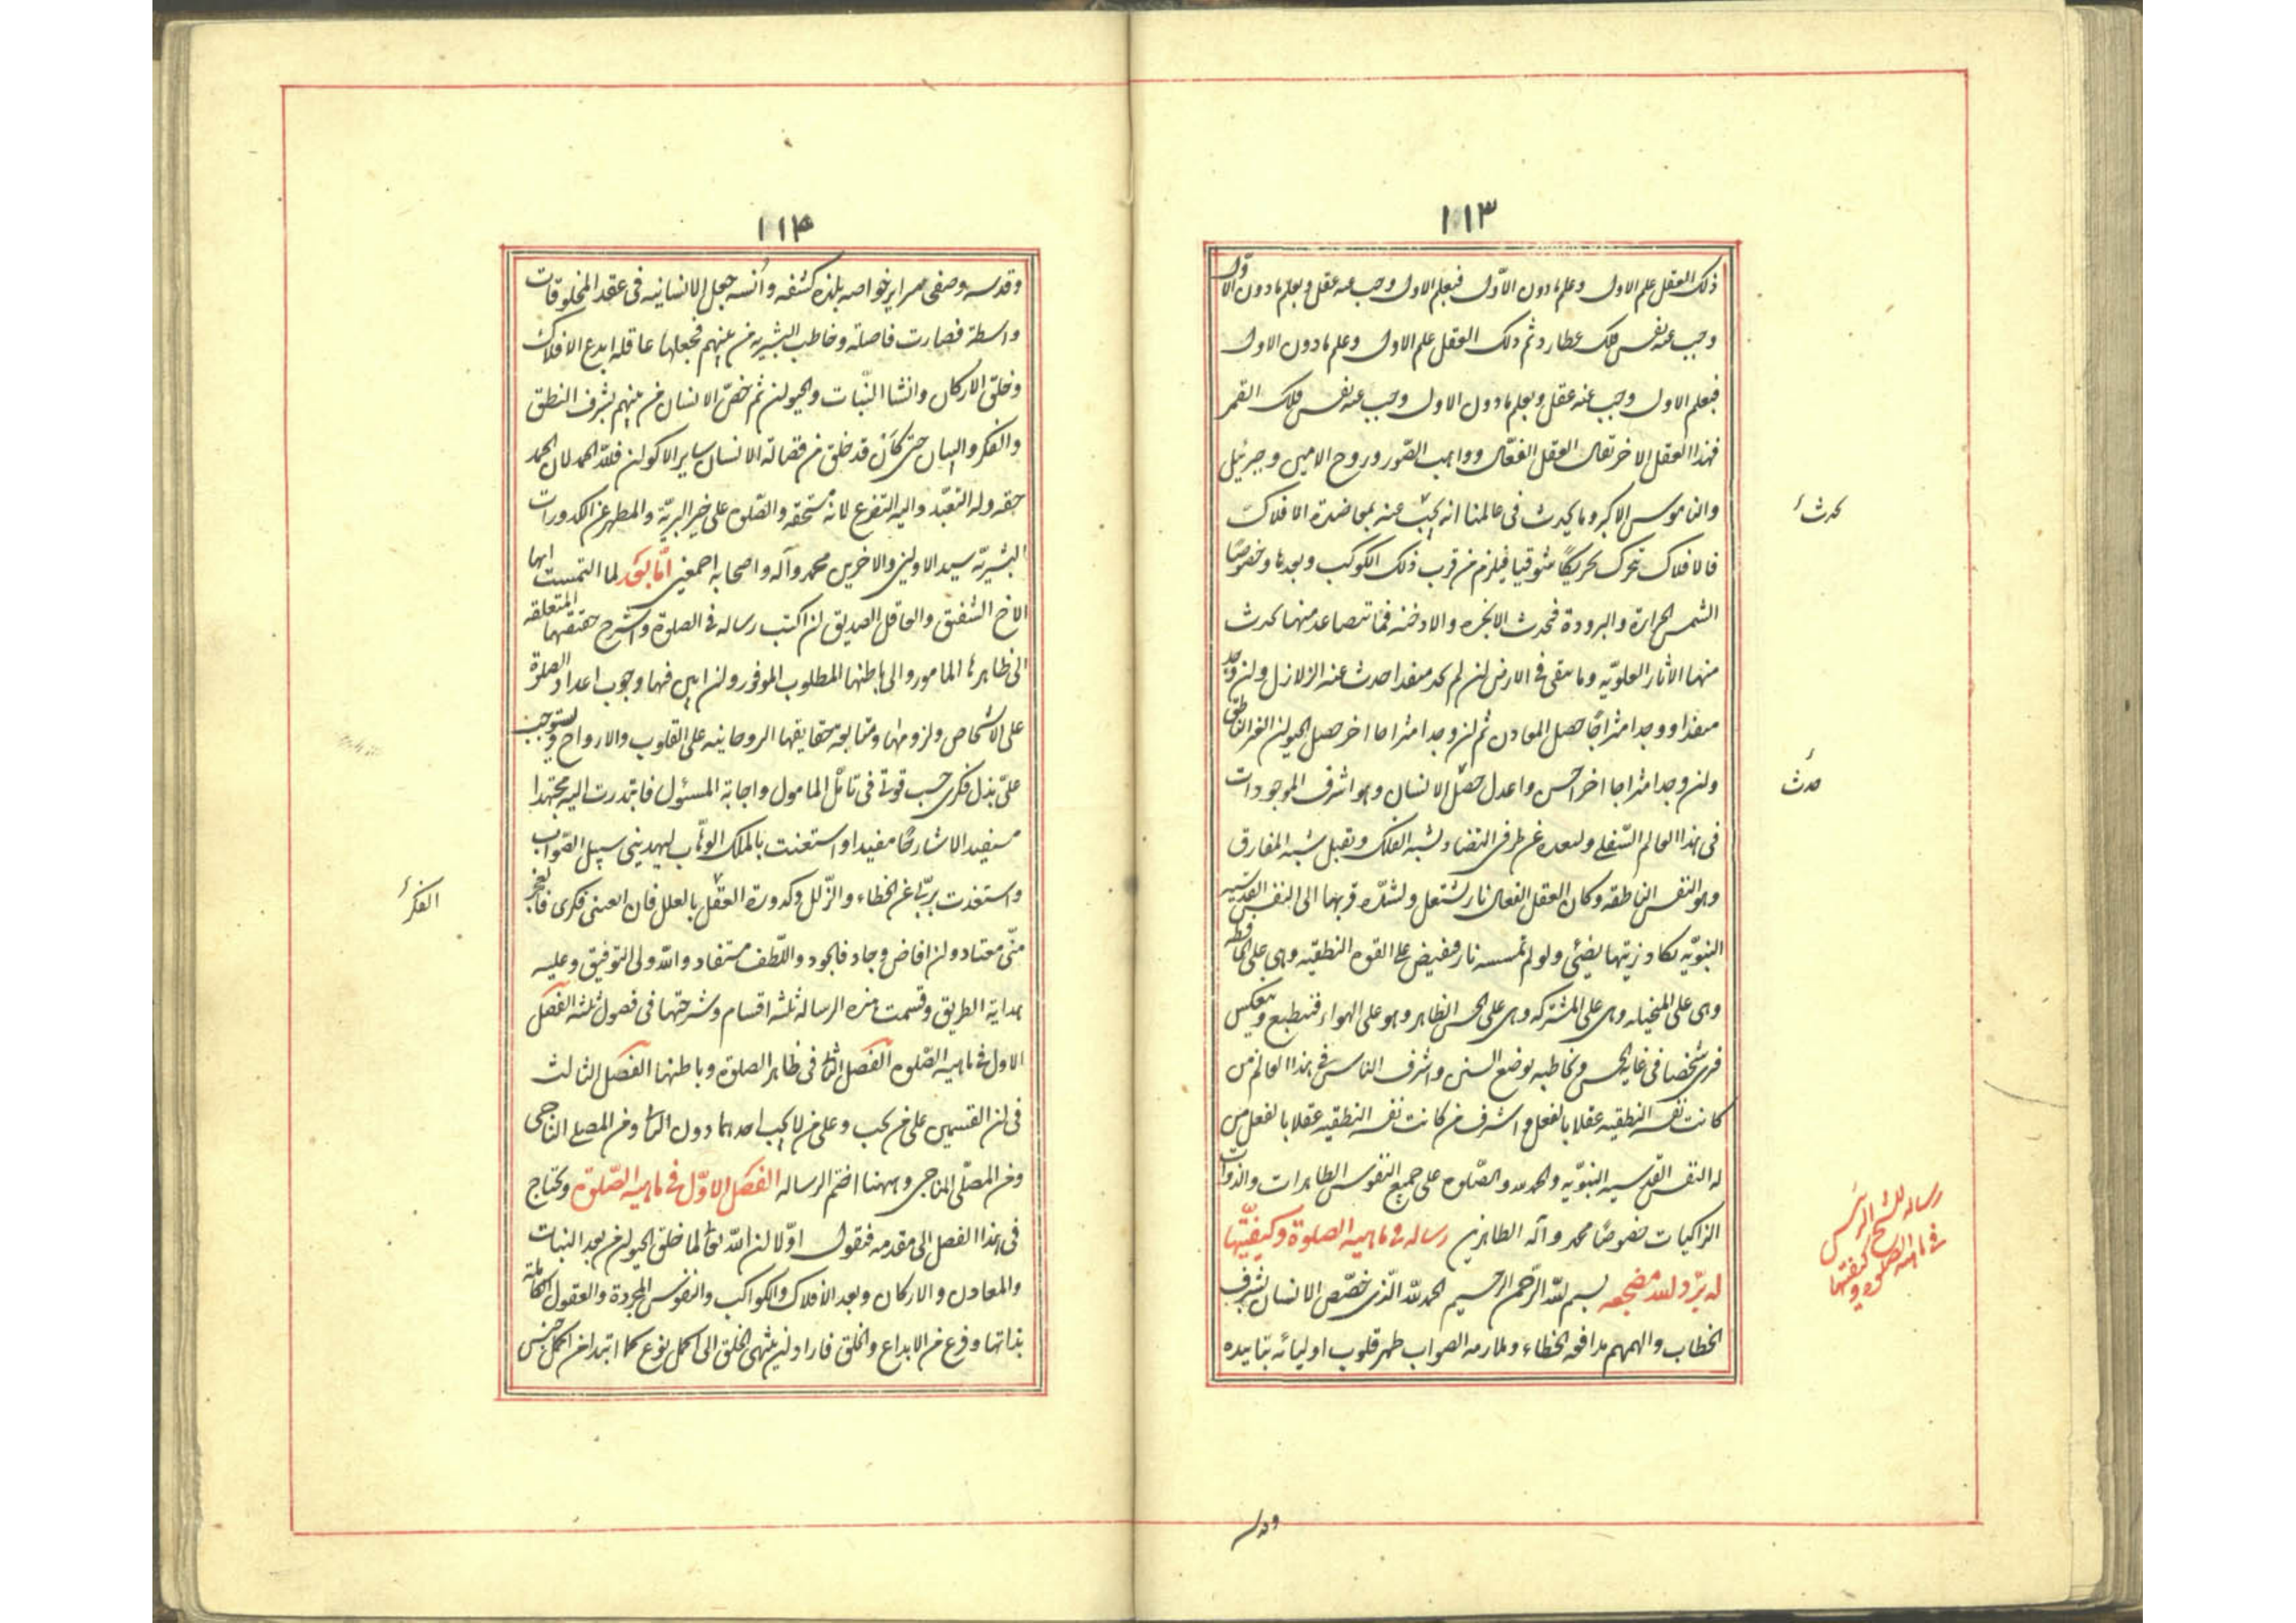 ١١٣
ذلك العقل علم الاول وعلم مادون الاوّل فبعلم الاول وجب عنه عقل وبعلم مادون الاول
وجب عنه نفس فلك عطارد ثم ذلك العقل علم الاول وعلم مادون الاول
فبعلم الاول وجب عنه عقل وبعلم مادون الاول وجب عنه نفس فلك القمر
فهذا العقل الاخر يقال العقل الفعّال وواهب الصّور وروح الامين وجبرئيل
والناموس الاكبر وما يحدث فى عالمنا انه يجب عنه بمعاضدة الافلاك
فالافلاك تتحرك تحريكًا شوقيا فيلزم من قرب ذلك الكوكب وبعدها وخصوصًا
الشمس الحرارة والبرودة فتحدث الابخره والادخنه فما تتصاعد منهما يحدث
منها الاثار العلويّه وما يبقى فى الارض ان لم يجد منفذا حدث عنه الزلازل وان وجد
منفذا ووجد امتزاجًا حصل المعادن ثم ان وجد امتزاجا اخر حصل الحيوان الغير الناطق
وان وجد امتزاجا اخر احسن واعدل حصل الانسان وهو اشرف الموجودات
فى هذا العالم السّفلى ولبعده عن طرفى التضاد يشبه الفلك ويقبل شبه المفارق
وهو النفس الناطقه وكان العقل الفعال نار يشتعل ولشدّه قربها الى النفس القدسيه
النبويّه يكاد زيتها يضئ ولو لم تمسسه نار فيفيض على القوه النطقيه وهى على الحافظه
وهى على المتخيله وهى على المشتركه وهى على الحس الظاهر وهو على الهواء فينطبع وينعكس
فيرى شخصا فى غاية الحسن ويخاطبه بوضع السنن واشرف الناس فى هذا العالم من
كانت نفسه النطقيه عقلا بالفعل واشرف من كانت نفسه النطقيه عقلا بالفعل من
له النفس القدسيه النبويّه والحمد لله والصّلوه على جميع النفوس الطاهرات والذوات
الزاكيات خصوصًا محمد وآله الطاهرين رساله فى ماهيه الصلوة وكيفيّتها
له برّد الله مضجعه بسم الله الرّحمن الرحيم الحمد لله الّذى خصّص الانسان بشرف
الخطاب والهمهم مدافعه الخطاء وملازمه الصواب طهر قلوب اوليائه بتاييده
يحدث
حدث
رساله للشيخ الرئيس
فى ماهية الصلوة وكيفيتها
وقدسه
١١٤
وقدسه وصفى سراير خواصه بلذه كشفه وانسه جعل الانسانيه فى عقد المخلوقات
واسطة فصارت فاصلة وخاطب البشريه من بينهم فجعلها عاقله ابدع الافلاك
وخلق الاركان وانشا النّبات والحيوان ثم خصّ الانسان من بينهم بشرف النطق
والفكر والبيان حتى كأن قد خلق من فضالة الانسان ساير الاكوان فللّه الحمد لان الحمد
حقه وله التعبّد واليه التضرع لانه مستحقه والصّلوه على خير البريّة والمطهر عن الكدورات
البشريّه سيد الاولين والاخرين محمد وآله واصحابه اجمعين امّا بعد لما التمست ايها
الاخ الشفيق والعاقل الصديق ان اكتب رساله فى الصلوة واشرح حقيقتهما المتعلقه
الى ظاهرها المامور والى باطنها المطلوب الموفور وان ابين فيها وجوب اعداد الصلوة
على الاشخاص ولزومها ومتابعه حقايقها الروحانيه على القلوب والارواح ويستوجب
علىّ بذل فكرى حسب قوتى فى تامّل المامول واجابة المسئول فابتدرت اليه مجتهدا
مستفيد الا شارحًا مفيدا واستعنت بالملك الوهّاب ليهدينى سبيل الصّواب
واستعذت بربّى عن الخطاء والزّلل وكدورة العقل بالعلل فان اعيى فكرى فالعجز
منّى معتاد وان افاض وجاد فالجود واللّطف مستفاد والله ولى التوفيق وعليه
هداية الطريق وقسمت هذه الرساله ثلثه اقسام وشرحتها فى فصول ثلثه الفصل
الاول فى ماهيه الصّلوه الفصل الثانى فى ظاهر الصلوة وباطنها الفصل الثالث
فى ان القسمين على من يجب وعلى من لا يجب احدهما دون الثانى ومن المصلى الناجى
ومن المصلّى المناجى وههنا اختم الرساله الفصل الاوّل فى ماهيه الصّلوة ونحتاج
فى هذا الفصل الى مقدمه فنقول اوّلا ان الله تعالى لما خلق الحيوان من بعد النبات
والمعادن والاركان وبعد الافلاك والكواكب والنفوس المجردة والعقول الكاملة
بذاتها وفرغ من الابداع والخلق فاراد ان ينتهى الخلق الى اكمل نوع كما ابتدا من اكمل جنس
الفكر